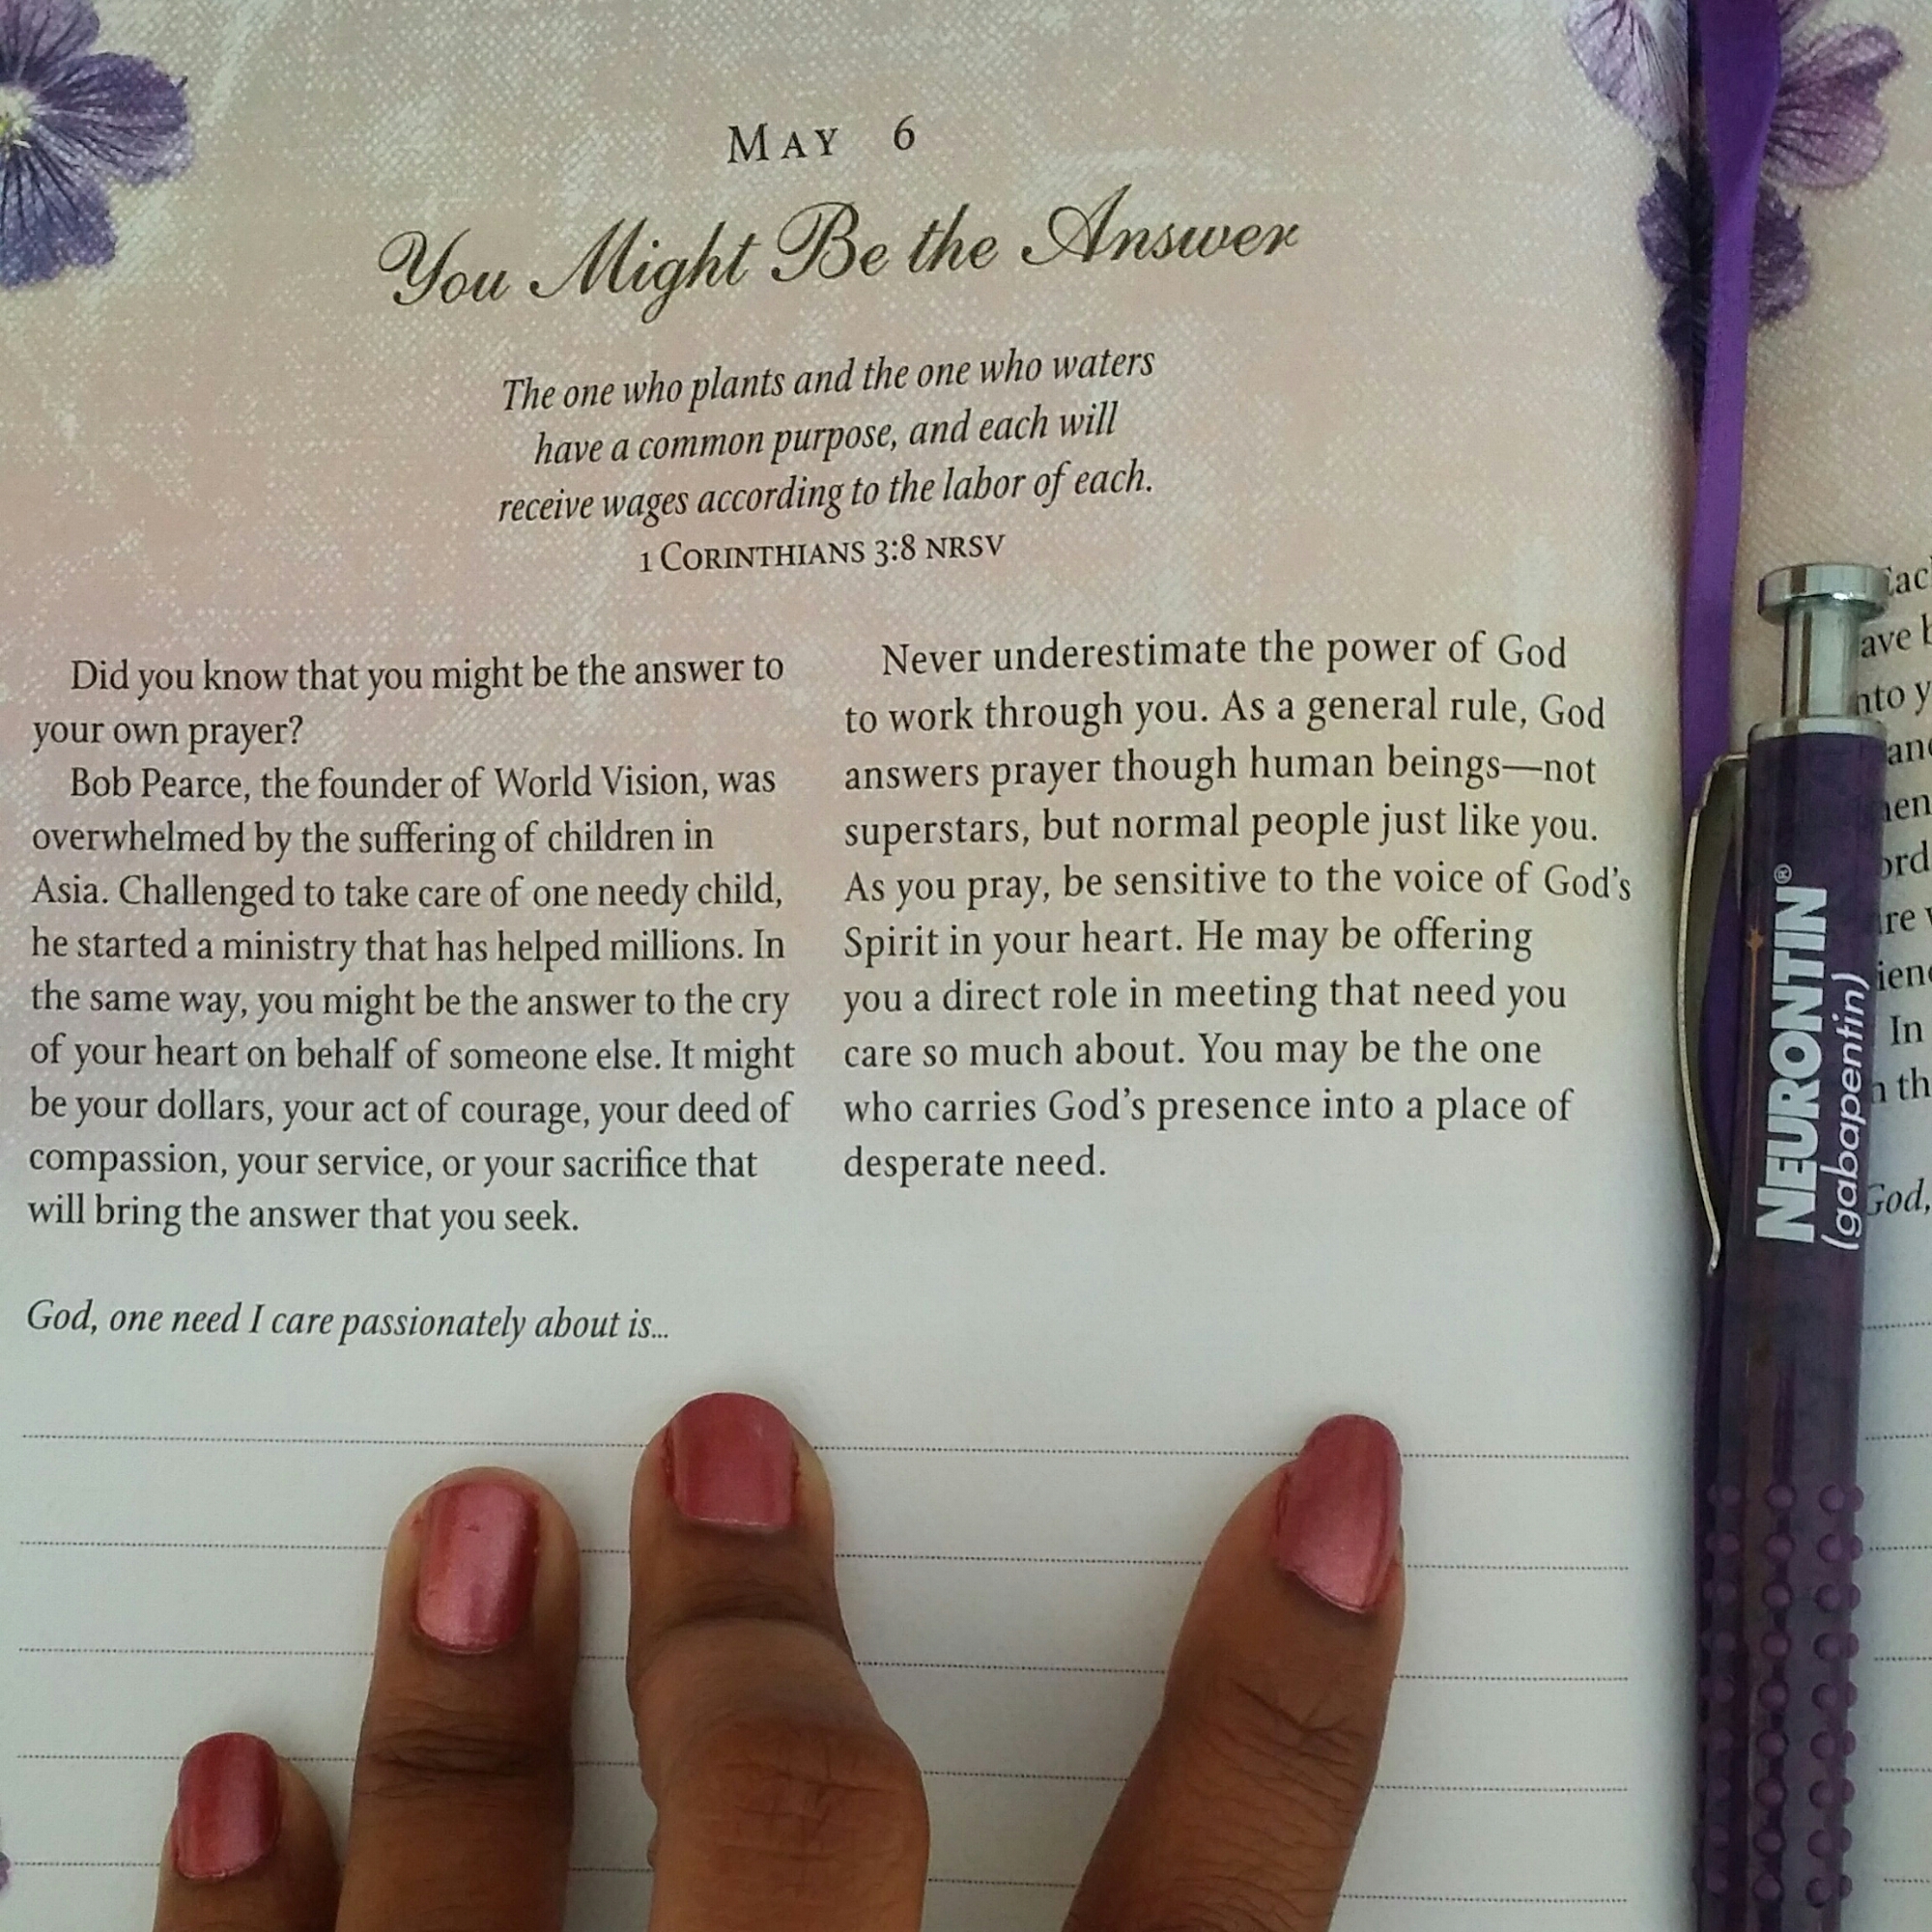 MAY 6
You Might Be the Answer
The one who plants and the one who waters
have a common purpose, and each will
receive wages according to the labor of each.
1 CORINTHIANS 3:8 NRSV
Did you know that you might be the answer to
your own prayer?
Bob Pearce, the founder of World Vision, was
overwhelmed by the suffering of children in
Asia. Challenged to take care of one needy child,
he started a ministry that has helped millions. In
the same way, you might be the answer to the cry
of your heart on behalf of someone else. It might
be your dollars, your act of courage, your deed of
compassion, your service, or your sacrifice that
will bring the answer that you seek.
Never underestimate the power of God
to work through you. As a general rule, God
answers prayer though human beings—not
superstars, but normal people just like you.
As you pray, be sensitive to the voice of God's
Spirit in your heart. He may be offering
you a direct role in meeting that need you
care so much about. You may be the one
who carries God's presence into a place of
desperate need.
God, one need I care passionately about is...
NEURONTIN®
(gabapentin)
In
God,